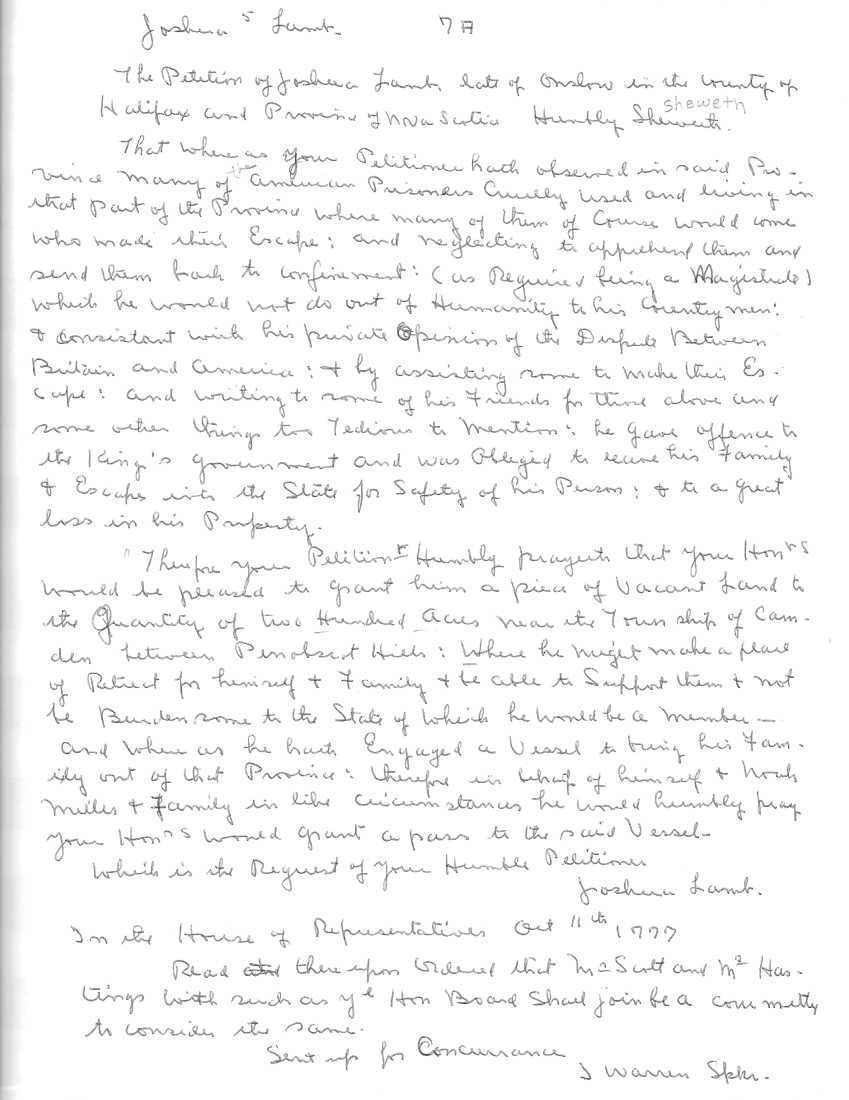 Joshua Lamb. 7A
The Petition of Joshua Lamb, late of Onslow in the County of
Halifax and Province of Nova Scotia Humbly Sheweth.
sheweth
That where as your Petitioner hath observed in said Pro-
vince many of the American Prisoners Cruelly used and living in
that part of the Province where many of them of Course would come
who made their Escape: and neglecting to apprehend them and
send them back to confinement: (as Required being a Magistrate)
which he would not do out of Humanity to his Countrymen:
& consistant with his private Opinion of the Dispute Between
Britain and America: & by assisting some to make their Es-
cape: and writing to some of his Friends for those above and
some other things too Tedious to Mention: he gave offence to
the King's government and was Obleged to leave his Family
& Escape into the State for Safety of his Person: & to a great
loss in his Property.
"Therefore your Petitionr Humbly prayeth that your Honrs
would be pleased to grant him a piece of Vacant Land to
the Quantity of two Hundred Acres near the Town ship of Cam-
den between Penobscot Hills: Where he might make a place
of Retreat for himself & Family & be able to Support them & not
be Burden some to the State of which he would be a member—
and where as he hath Engaged a Vessel to bring his Fam-
ily out of that Province: therefore in behalf of himself & Noah
Miller & Family in like circumstances he would humbly pray
your Honrs would grant a pass to the said Vessel—
which is the Request of your Humble Petitioner
Joshua Lamb.
In the House of Representatives Oct 11th 1777
Read and there upon Ordered that Mr Scott and Mr Has-
tings with such as ye Hon Board Shall join be a committy
to consider the same.
Sent up for Concurrance
J Warren Spkr.